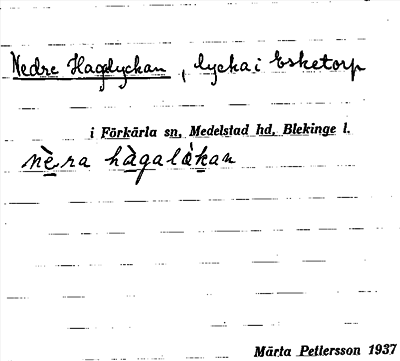 Nedre Hagalyckan, lycka i Esketorp
i Förkärla sn, Medelstad hd, Blekinge l.
nèra hàgalỳkan
Märta Petersson 1937